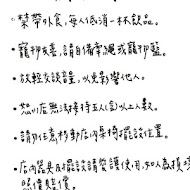 禁帶外食,每人低消一杯飲品。
寵物友善,請自備牽繩或寵物籃。
放輕交談聲,以免影響他人。
恕店無法接待五人(含)以上人數。
請勿任意移動店內桌椅擺設位置。
店內器具及擺設請愛護使用,如人為損壞
照價賠償。